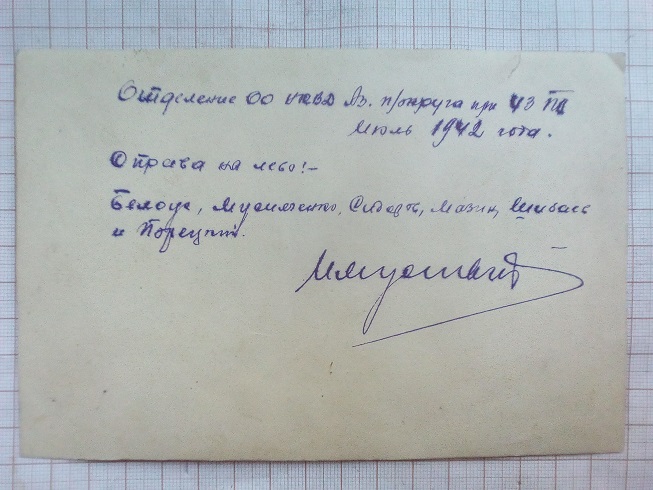 Отделение ОО НКВД Аз. п/округа при 43 ПП
Июль 1942 года.
Справа на лево!–
Белоус, Мусияченко, Сидор, Мазин, Шибаев
и Порецкий.